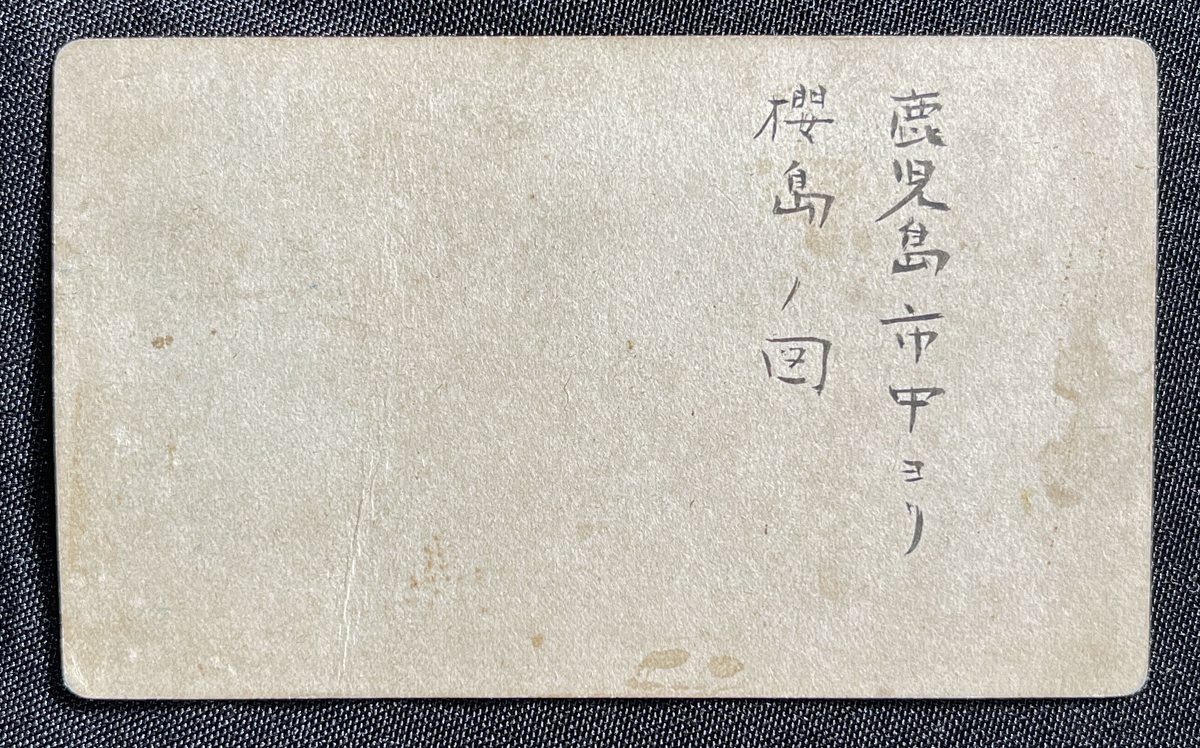 鹿児島市中ヨリ
櫻島ノ図